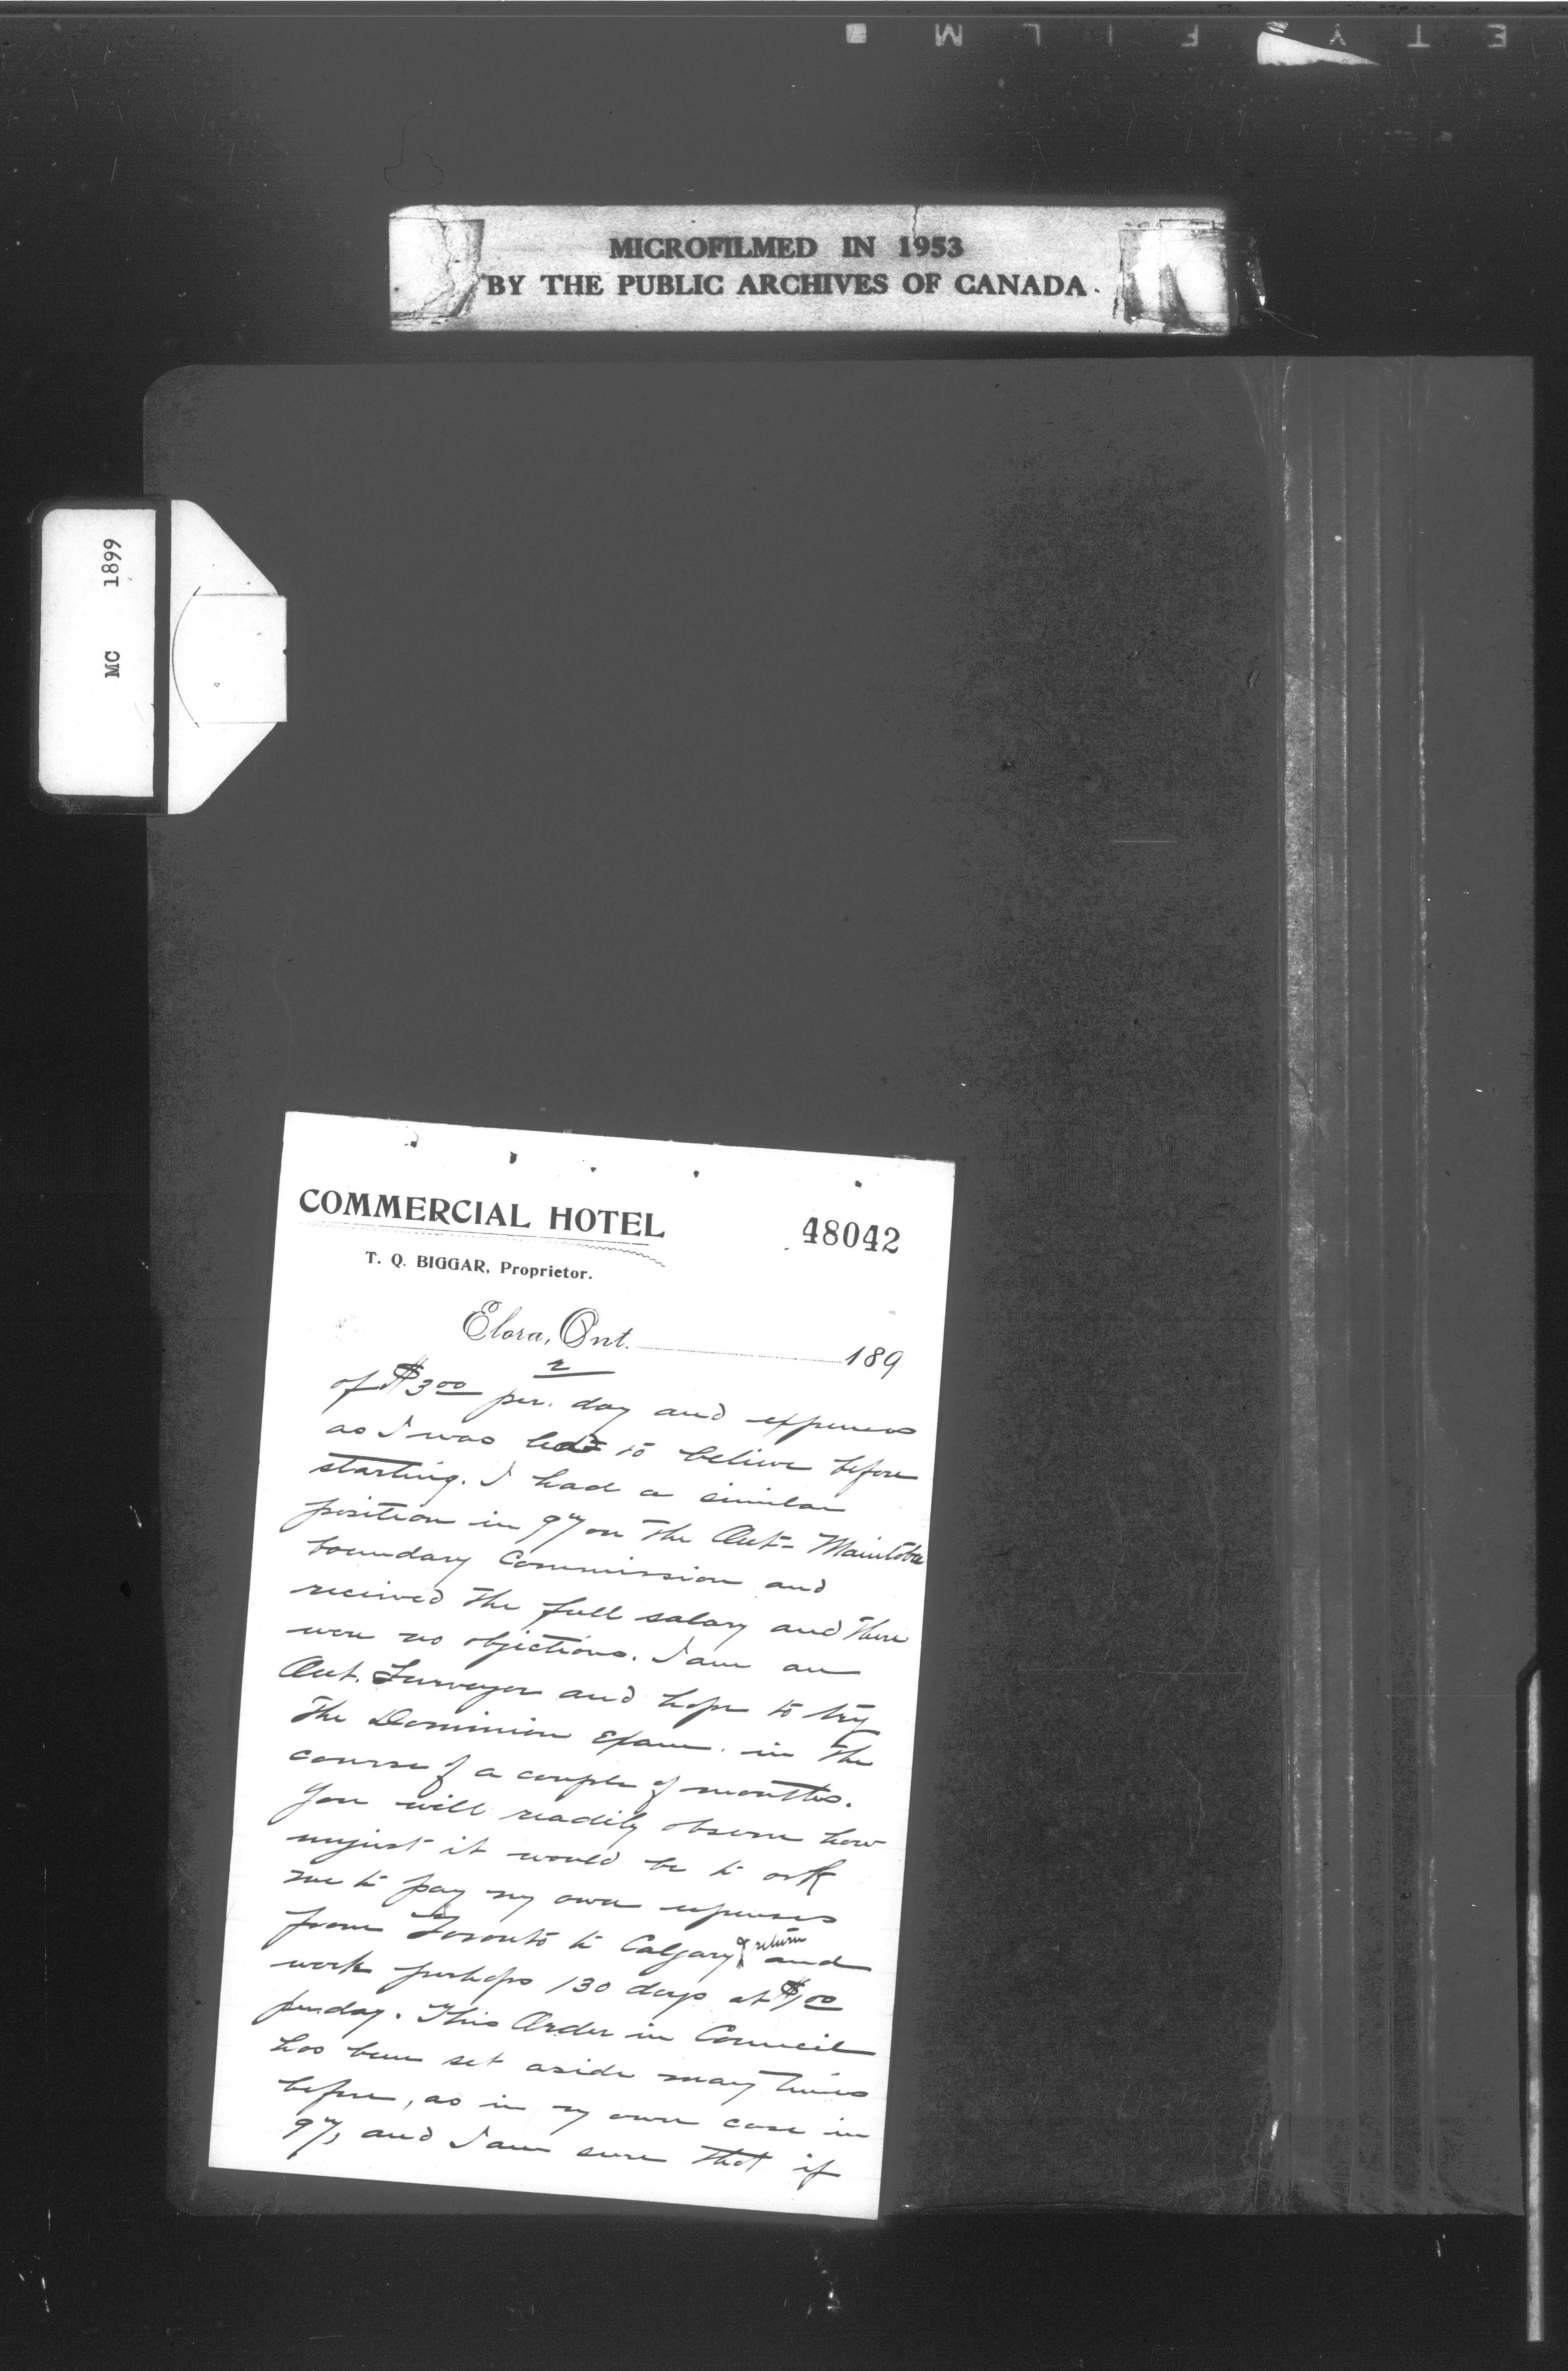 ETY FILM
MICROFILMED IN 1953
BY THE PUBLIC ARCHIVES OF CANADA
MC 1899
COMMERCIAL HOTEL
48042
T. Q. BIGGAR, Proprietor.
Elora, Ont. 189
2
of $3 00 per. day and expenses
as I was led to believe before
starting. I had a similar
position in 97 on the Ont- Manitoba
boundary Commission and
received the full salary and there
were no objections. I am an
Ont. Surveyor and hope to try
the Dominion Exam. in the
course of a couple of months.
You will readily observe how
unjust it would be to ask
me to pay my own expenses
from Toronto to Calgary & return and
work perhaps 130 days at $1 00
per day. This Order in Council
has been set aside many times
before, as in my own case in
97, and I am sure that if